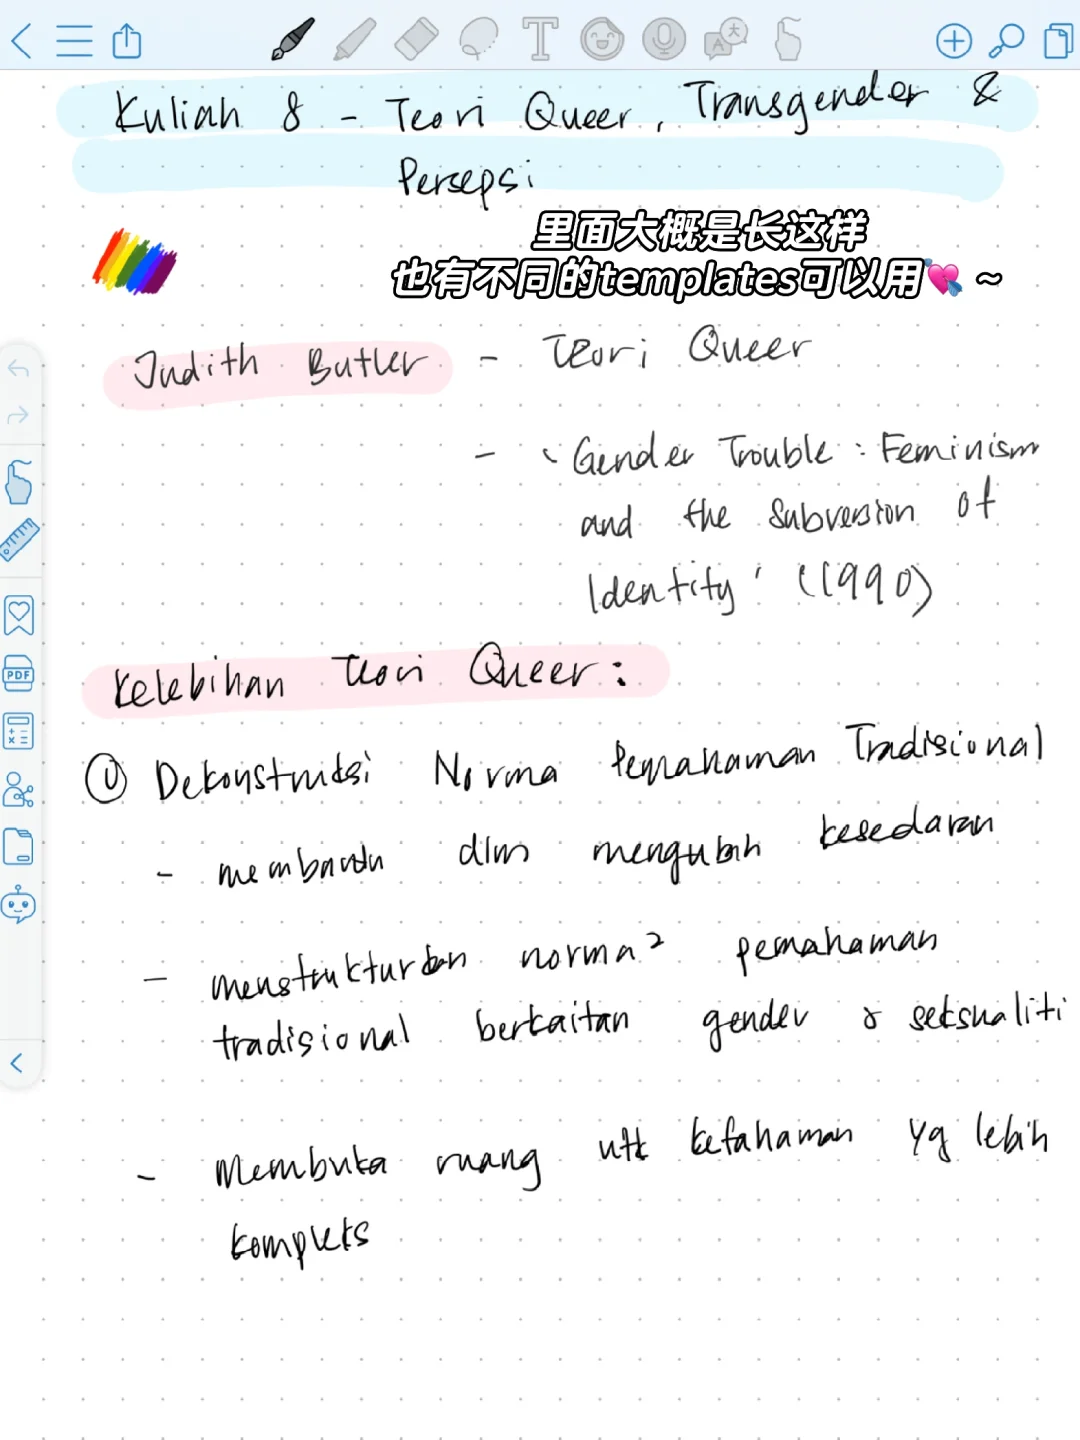 Kuliah 8 - Teori Queer, Transgender &
Persepsi
里面大概是长这样
也有不同的templates可以用💘 ~
Judith Butler - Teori Queer
- 'Gender Trouble : Feminism
and the Subversion of
Identity' (1990)
Kelebihan Teori Queer :
① Dekonstruksi Norma Pemahaman Tradisional
- membantu dlm mengubah kesedaran
- menstrukturkan norma² pemahaman
tradisional berkaitan gender & seksualiti
- Membuka ruang utk kefahaman yg lebih
kompleks
PDF